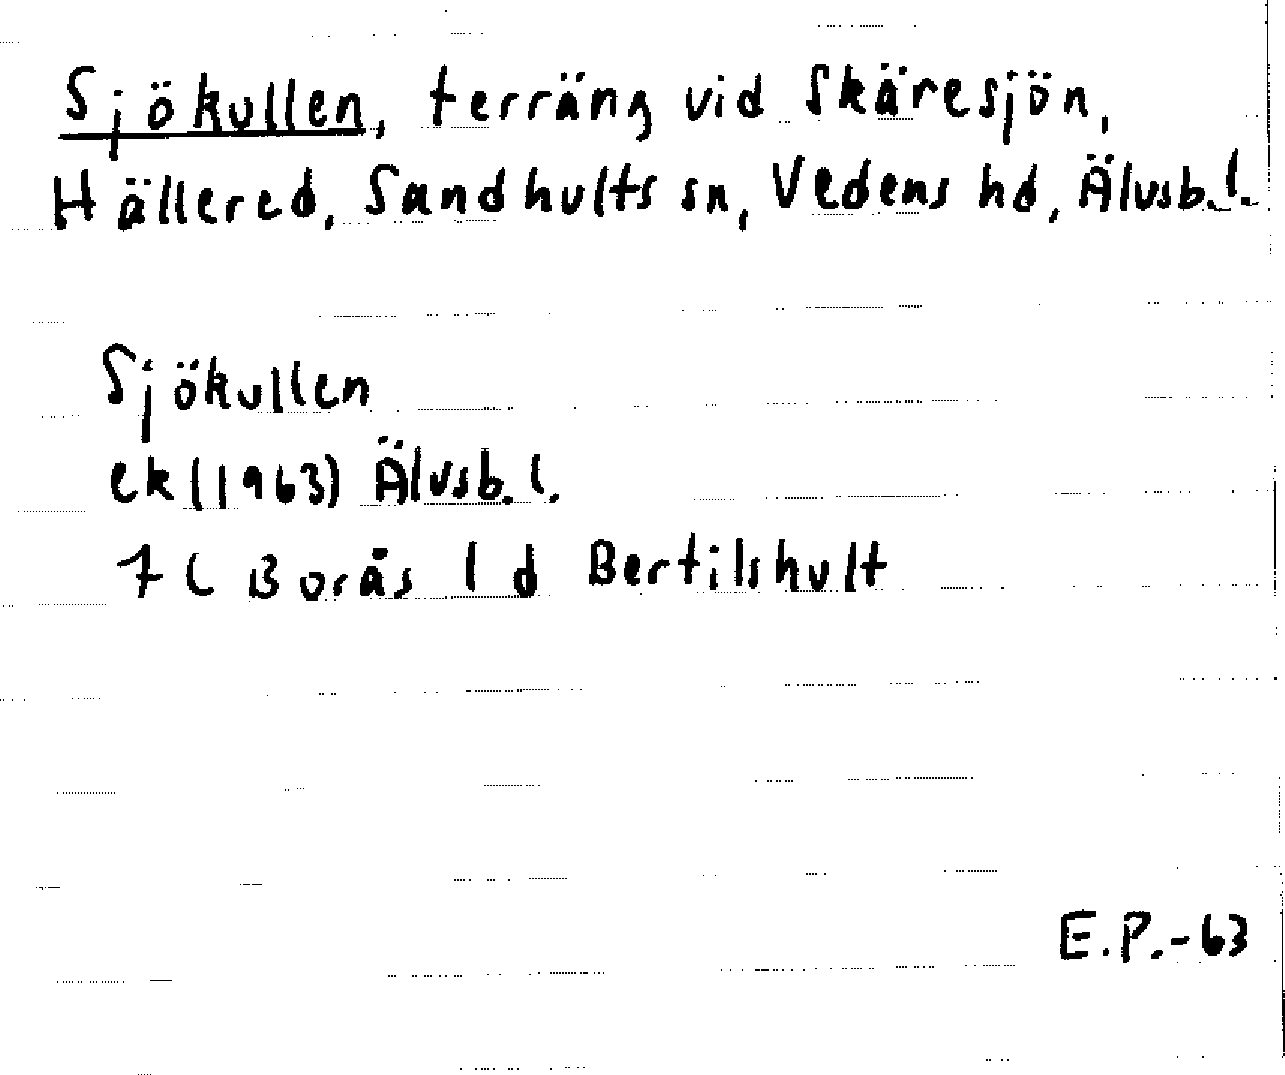 Sjökullen, terräng vid Skäresjön,
Hällered, Sandhults sn, Vedens hd, Älvsb.l.
Sjökullen
ek (1963) Älvsb. l.
7 C Borås 1 d Bertilshult
E.P.-63